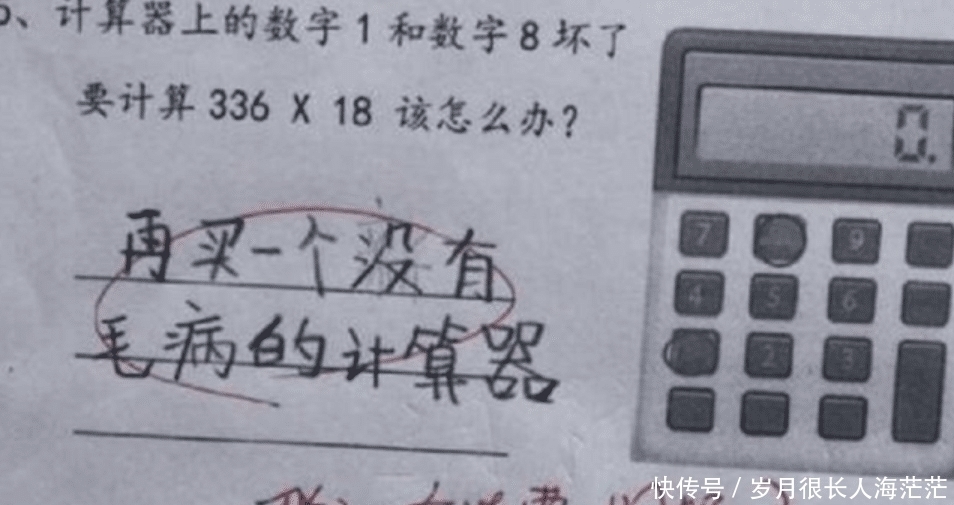 、计算器上的数字1和数字8坏了
要计算336 X 18 该怎么办？
再买一个没有
毛病的计算器
0.
7
9
4 5 6
2 3
快传号 / 岁月很长人海茫茫